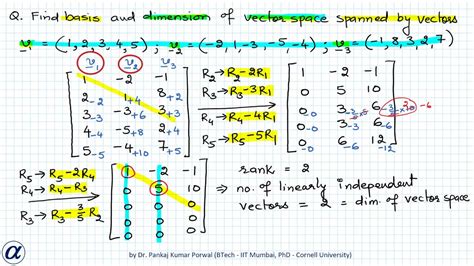 Q. Find basis and dimension of vector space spanned by vectors
v1 = (1, 2, 3, 4, 5) ; v2 = (-2, 1, -3, -5, -4) ; v3 = (-1, 8, 3, 2, 7)
v1 v2 v3
1 -2 -1
2-2 1+4 8+2
3-3 -3+6 3+3
4-4 -5+8 2+4
5-5 -4+10 7+5
R2 → R2-2R1
R3 → R3-3R1
R4 → R4-4R1
R5 → R5-5R1
1 -2 -1
0 5 10
0 3 6
0 3 6
0 6 12
R5 → R5-2R4
R4 → R4-R3
R3 → R3-3/5 R2
1 -2 -1
0 5 10
0 0 0
0 0 0
0 0 0
rank = 2
⇒ no. of linearly independent
vectors = 2 = dim. of vector space
α
by Dr. Pankaj Kumar Porwal (BTech - IIT Mumbai, PhD - Cornell University)